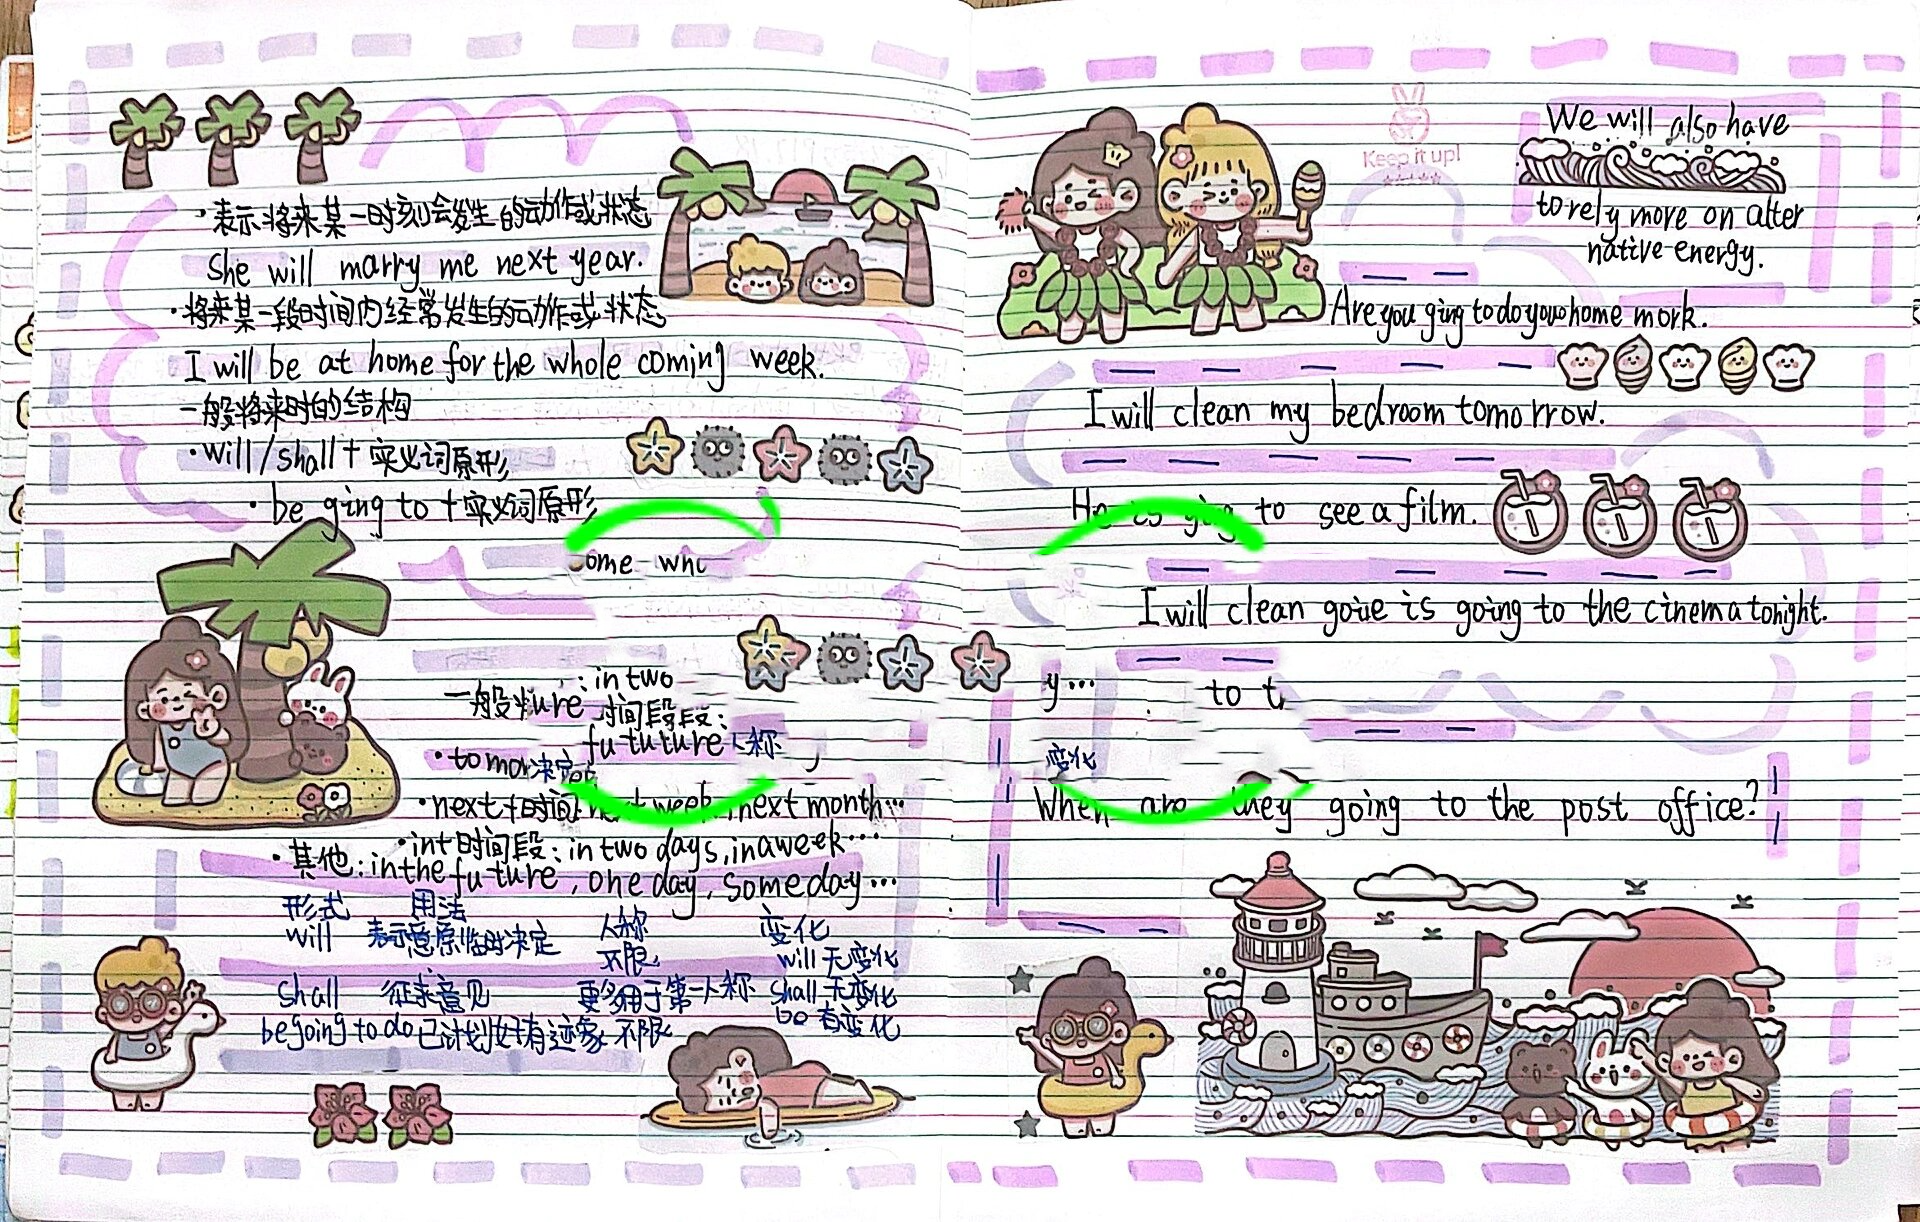 ·表示将来某一时刻会发生的动作或状态
She will marry me next year.
·将来某一段时间内经常发生的动作或状态
I will be at home for the whole coming week.
一般将来时的结构
·will/shall+实义词原形
·be ging to +实义词原形
ome who
:in two
一般 ure 时间段段:
fu tuture 人称
·tomor决定
·next+时间: next week, next month…
·int时间段: in two days, in a week…
·其他: in the fu ture, one day, someday…
形式 用法 人称 变化
will 表示意愿临时决定 不限 will 无变化
shall 征求意见 更多用于第一人称 shall 无变化
be going to do 已计划好有迹象 不限 be 有变化
Keep it up!
We will also have
to rely more on alter
native energy.
Are you ging to do your home mork.
I will clean my bedroom tomorrow.
He is ging to see a film.
I will clean goiue is going to the cinema tonight.
y… to t
变化
When are they going to the post office?